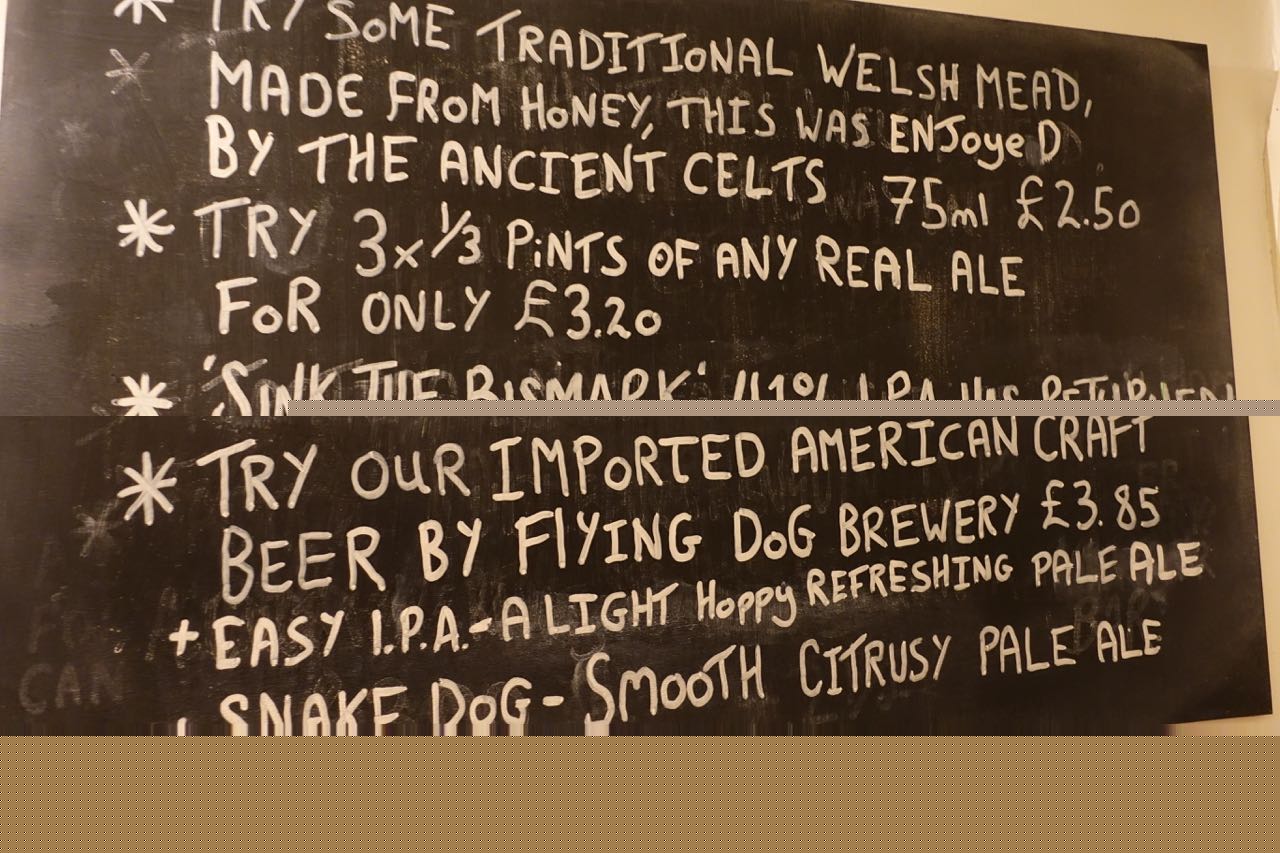 * TRY SOME TRADITIONAL WELSH MEAD,
MADE FROM HONEY, THIS WAS ENJoyeD
BY THE ANCIENT CELTS 75ml £2.50
* TRY 3x 1/3 PiNTS OF ANY REAL ALE
FOR ONLY £3.20
* 'SINK THE BISMARK' 41% I.P.A. HAS RETURNED
* TRY OUR IMPORTED AMERICAN CRAFT
BEER BY FlYING DOG BREWERY £3.85
+ EASY I.P.A.-A LIGHT Hoppy REFRESHING PALE ALE
SNAKE DOG- SMOOTH CITRUSY PALE ALE